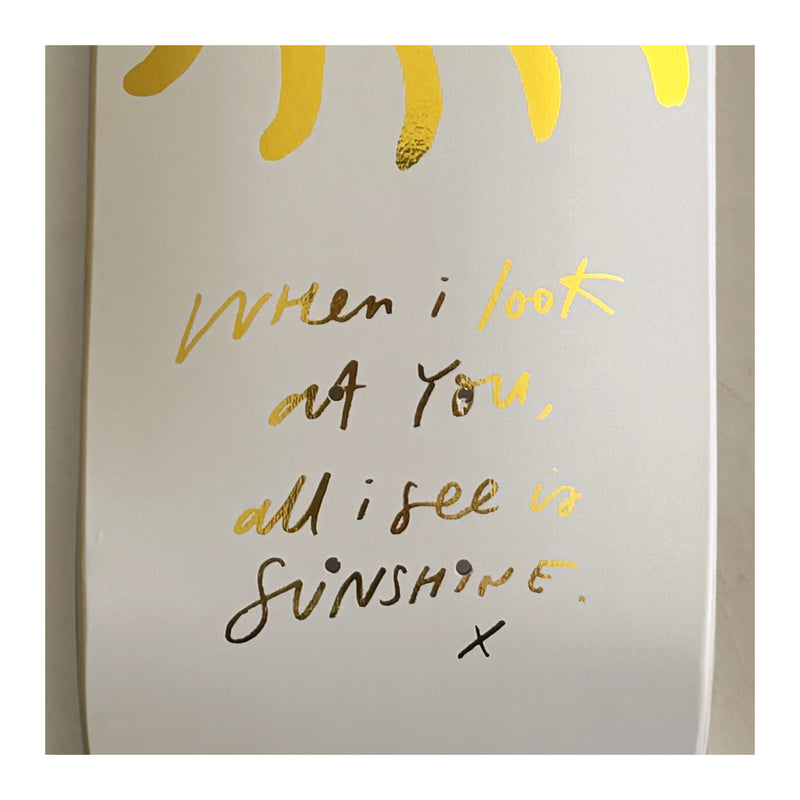 WHen i look
at You,
all i see is
SUNSHiNE.
x